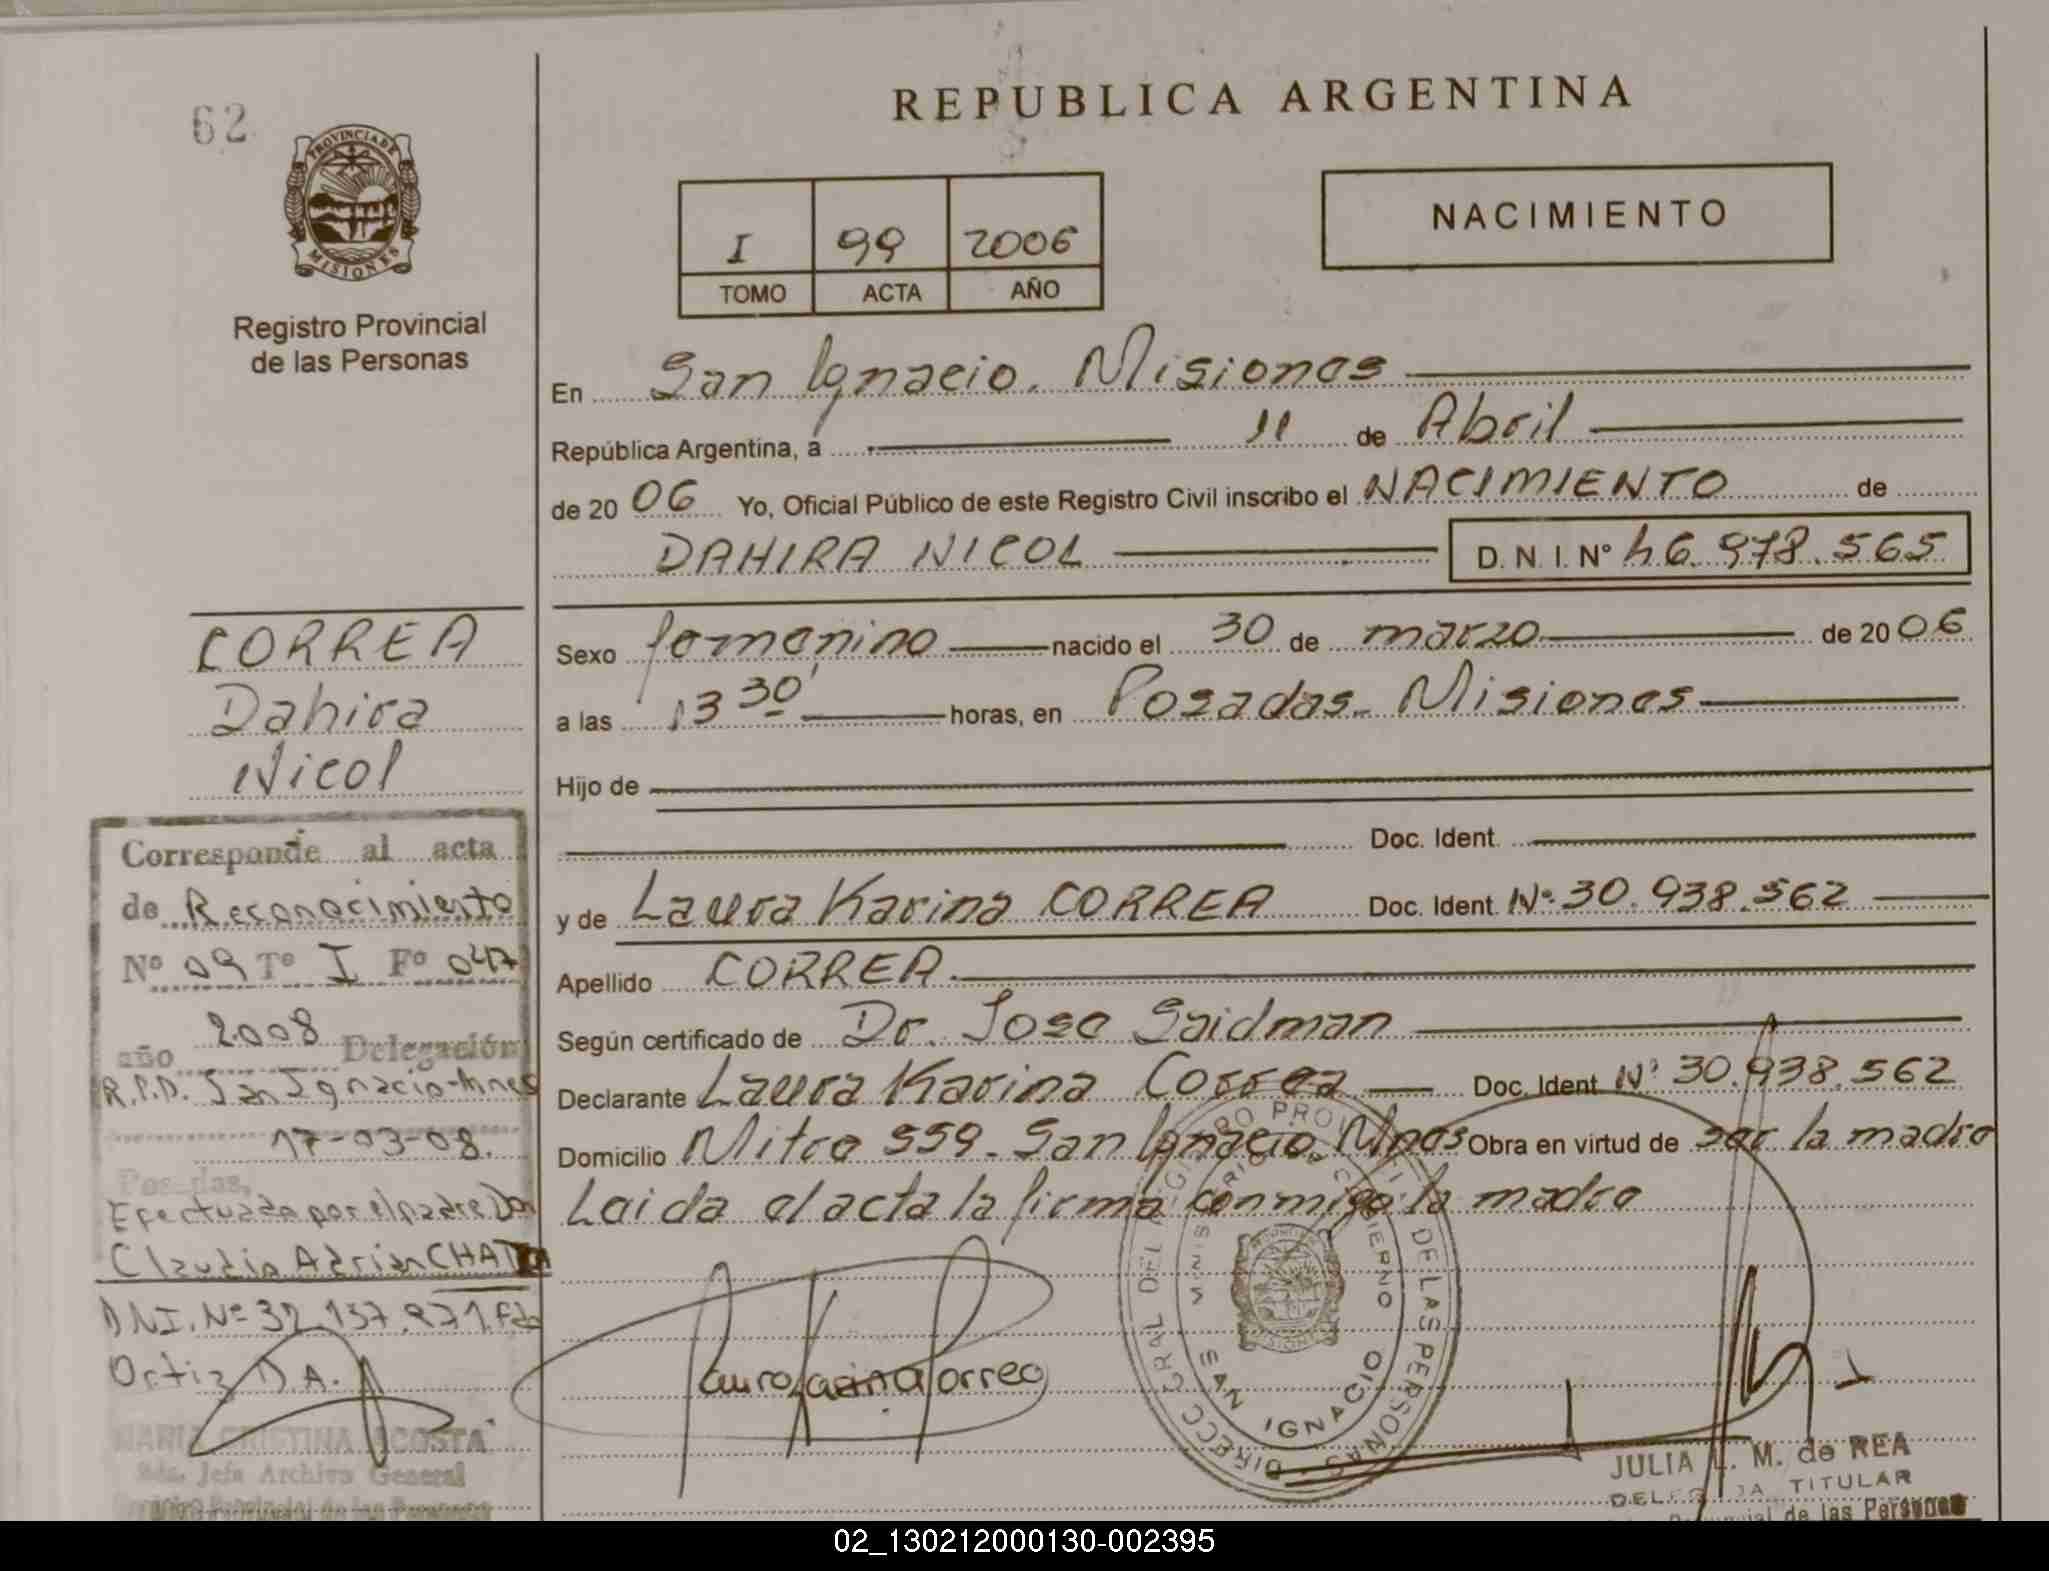 62
PROVINCIA DE
MISIONES
Registro Provincial
de las Personas
REPUBLICA ARGENTINA
I 99 2006
TOMO ACTA AÑO
NACIMIENTO
En San Ignacio. Misiones
República Argentina, a 11 de Abril
de 20 06 Yo, Oficial Público de este Registro Civil inscribo el NACIMIENTO de
DAHIRA NICOL D. N. I. Nº 46.978.565
Sexo femenino nacido el 30 de marzo de 20 06
a las 13 30' horas, en Posadas. Misiones
Hijo de
Doc. Ident.
y de Laura Karina CORREA Doc. Ident. Nº 30.938.562
Apellido CORREA
Según certificado de Dr. Jose Saidman
Declarante Laura Karina Correa Doc. Ident Nº 30.938.562
Domicilio Mitre 559. San Ignacio. Mnes Obra en virtud de ser la madre
Leida el acta la firma conmigo la madre
CORREA
Dahira
Nicol
Corresponde al acta
de Reconocimiento
Nº 09 Tº I Fº 047
año 2008 Delegación
R.P.P. San Ignacio-Mnes
17-03-08.
Posadas,
Efectuado por el padre Don
Claudio Adrián
DNI. Nº 32.137.971. Fdo
Ortiz D A.
MARIA CRISTINA ACOSTA
Sda. Jefa Archivo General
Registro Provincial de las Personas
Laura Karina Correa
DIRECC GRAL DEL REGISTRO PROVINCIAL DE LAS PERSONAS
MINISTERIO DE GOBIERNO
SAN IGNACIO
JULIA L. M. de REA
DELEGADA TITULAR
Provincial de las Personas
02_130212000130-002395